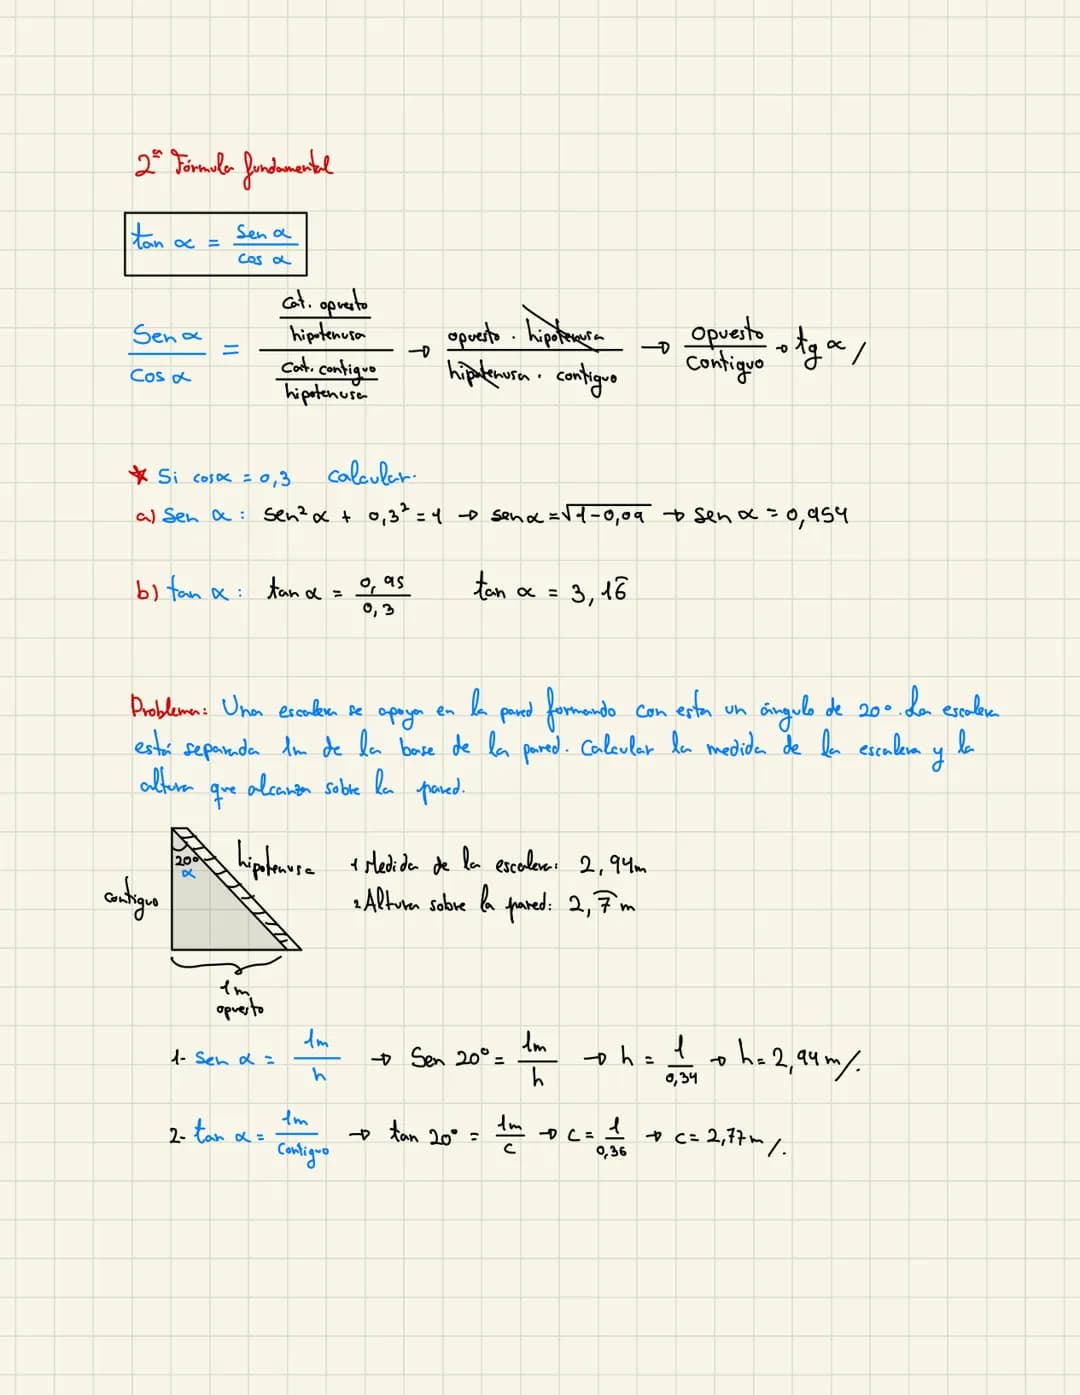 2ª Fórmula fundamental
tan α = Sen α / cos α
Sen α / Cos α = (Cat. opuesto / hipotenusa) / (Cat. contiguo / hipotenusa) → opuesto . hipotenusa / hipotenusa . contiguo → opuesto / Contiguo → tg α /
* Si cos α = 0,3 calcular.
a) Sen α : Sen² α + 0,3² = 1 → sen α = √1-0,09 → sen α = 0,954
b) tan α : tan α = 0,95 / 0,3 tan α = 3,16̂
Problema: Una escalera se apoya en la pared formando con esta un ángulo de 20º. La escalera
está separada 1m de la base de la pared. Calcular la medida de la escalera y la
altura que alcanza sobre la pared.
20º
α
hipotenusa
contiguo
1m
opuesto
1 Medida de la escalera: 2,94m
2 Altura sobre la pared: 2,7̂ m
1- Sen α = 1m / h → Sen 20º = 1m / h → h = 1 / 0,34 → h = 2,94 m /.
2- tan α = 1m / Contiguo → tan 20º = 1m / c → c = 1 / 0,36 → c = 2,77 m /.